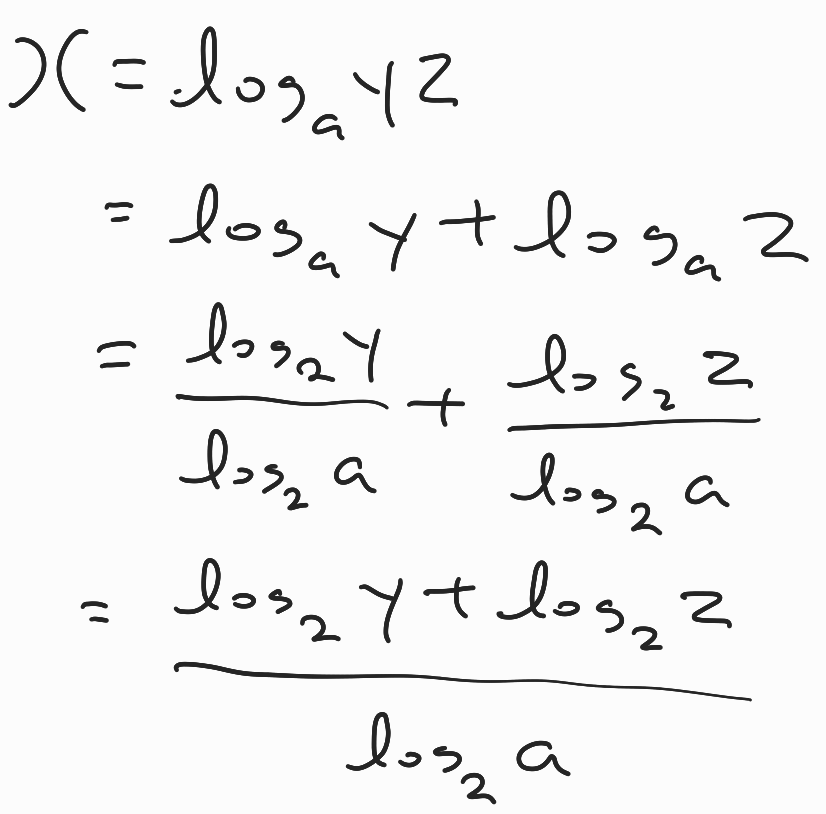 x = log_a yz
= log_a y + log_a z
= \frac{log_2 y}{log_2 a} + \frac{log_2 z}{log_2 a}
= \frac{log_2 y + log_2 z}{log_2 a}